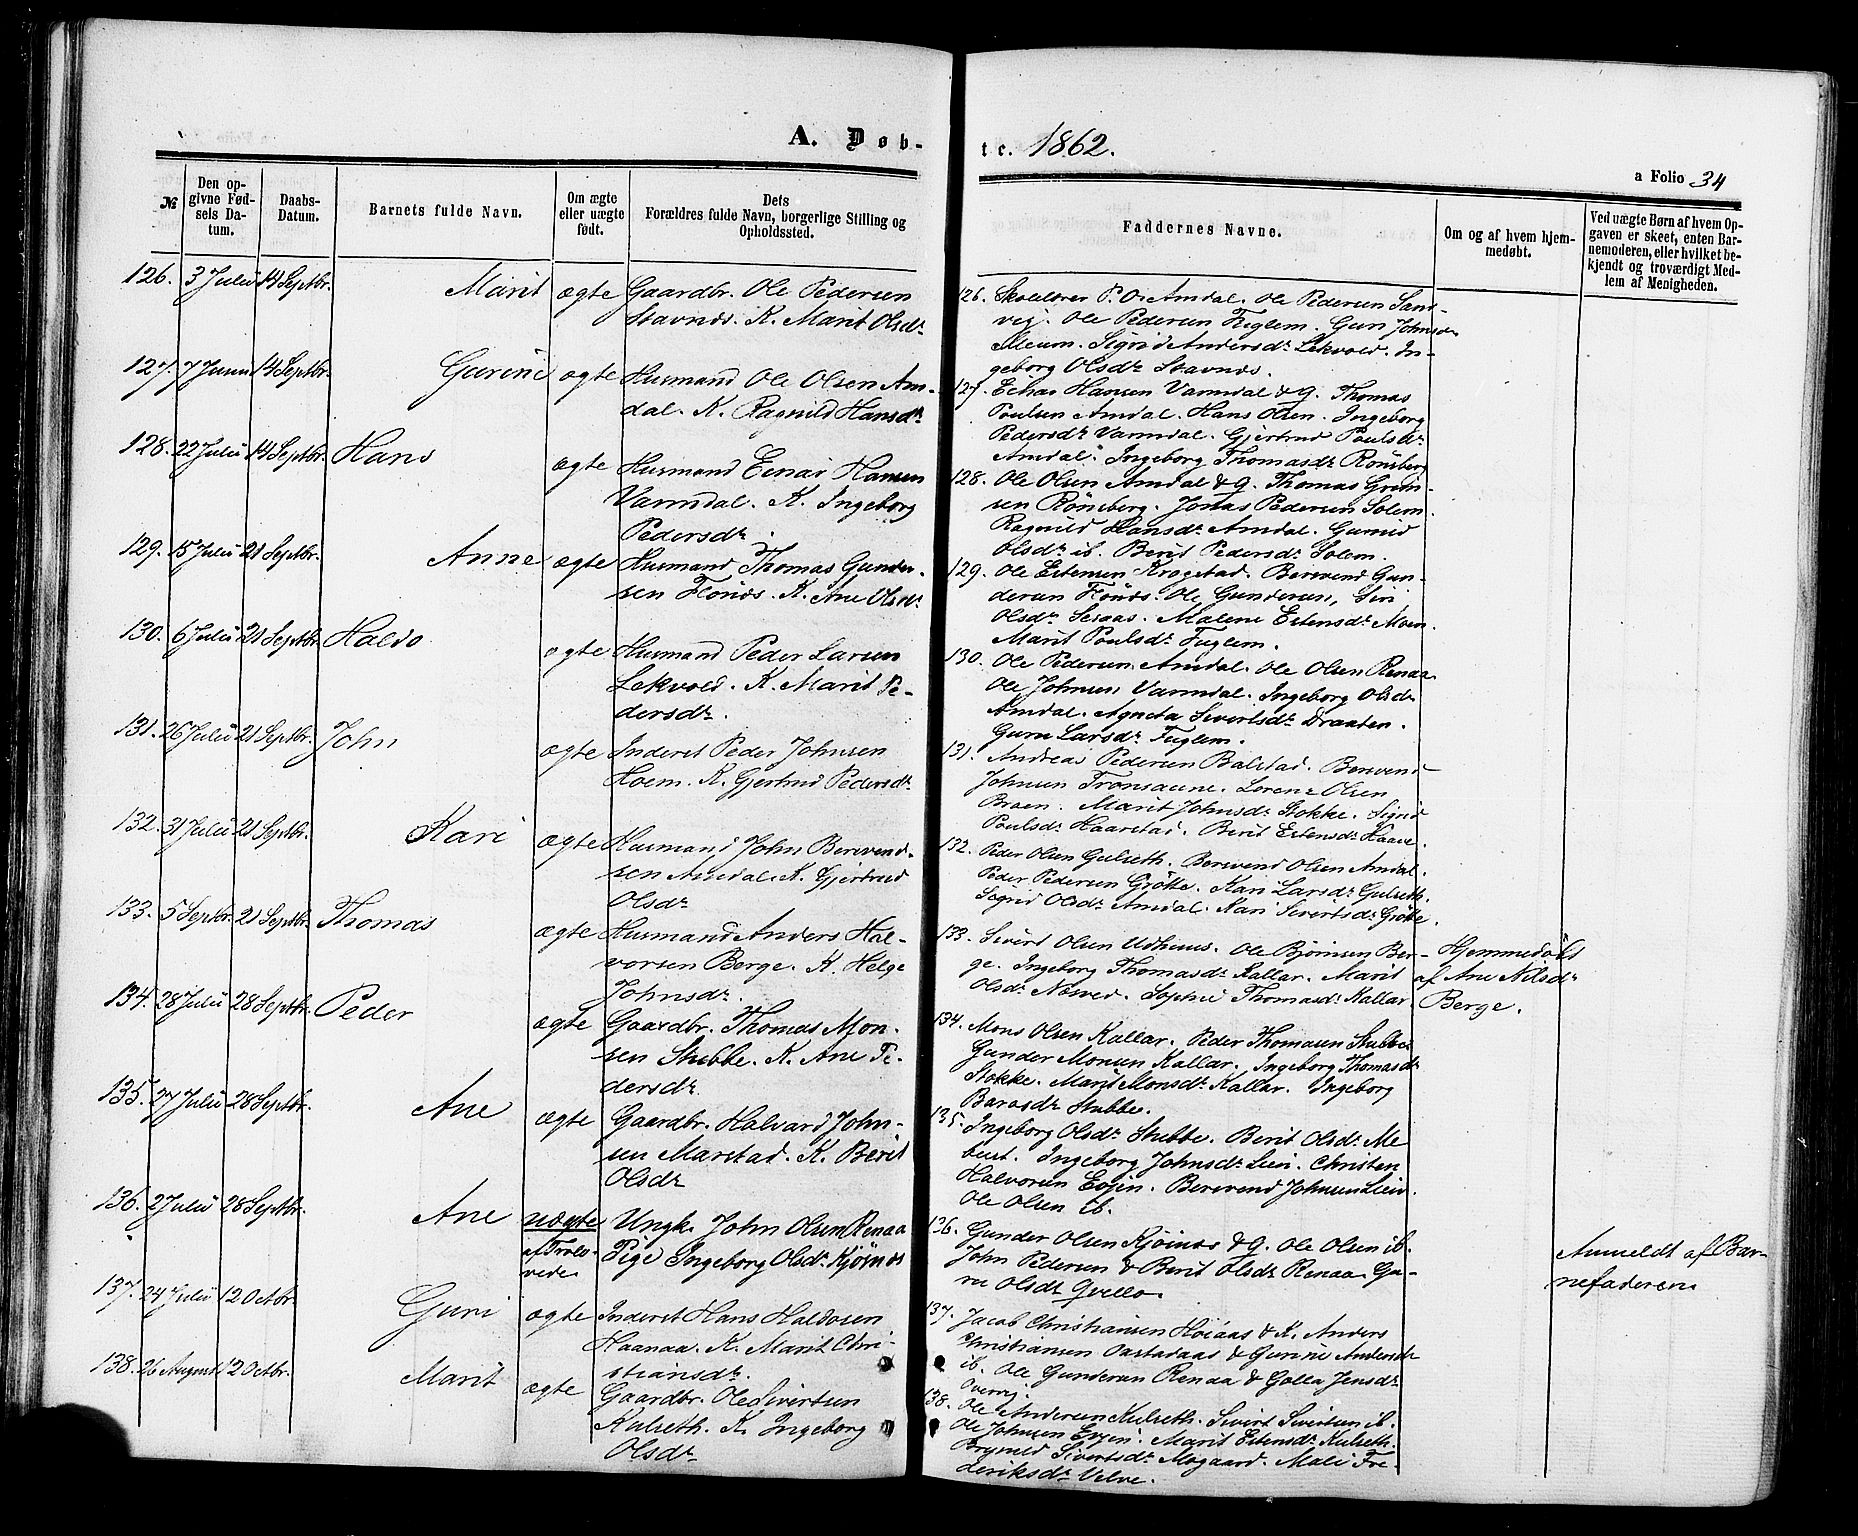 A. Døb-
te. 1862.
a Folio 34
№
Den op-
givne Fød-
sels Da-
tum.
Daabs-
Datum.
Barnets fulde Navn.
Om ægte
eller uægte
født.
Dets
Forældres fulde Navn, borgerlige Stilling og
Opholdssted.
Faddernes Navne.
Om og af hvem hjem-
medøbt.
Ved uægte Børn af hvem Op-
gaven er skeet, enten Bar-
nemoderen, eller hvilket be-
kjendt og troværdigt Med-
lem af Menigheden.
126. 3 Julii 14 Septbr. Marit ægte Gaardbr. Ole Pedersen
Stavnes. K. Marit Olsdr
126. Skolelærer P. O. Amdal. Ole Pedersen Sand-
vig. Ole Pedersen Fuglem. Guri Johnsdr
Aleum. Sigrid Andersdr Lekvold. In-
geborg Olsdr Stavnes.
127. 7 Junii 14 Septbr. Gurine ægte Husmand Ole Olsen Am-
dal. K. Ragnild Hansdr
127. Einar Hansen Varmdal & G. Thomas
Poulsen Amdal. Hans Olsen. Ingeborg
Pedersdr Varmdal. Gjertrud Poulsdr
Amdal. Ingeborg Thomasdr Rönsberg
128. 22 Julii 14 Septbr. Hans ægte Husmand Einar Hansen
Varmdal. K. Ingeborg
Pedersdr.
128. Ole Olsen Amdal & G. Thomas
sen Rönsberg. Jonas Pedersen Solem.
Ragnild Hansdr Amdal. Gunild
Olsdr ib. Berit Pedersdr Solem.
129. 15 Julii 21 Septbr. Anne ægte Husmand Thomas Gunder-
sen Flönes. K. Ane Olsdr
129. Ole Estensen Krogstad. Berevend Gun-
dersen Flönes. Ole Gundersen, Siri
Olsdr Sesaas. Malene Estensdr Moen.
Marit Poulsdr Fuglem.
130. 6 Julii 21 Septbr. Haldo ægte Husmand Peder Larsen
Lekvold. K. Marit Pe-
dersdr.
130. Ole Pedersen Amdal. Ole Olsen Renaa.
Ole Johnsen Varmdal. Ingeborg Olsdr
Amdal. Agneta Sivertsdr Draaten.
Guru Larsdr Fuglem.
131. 26 Julii 21 Septbr. John ægte Inderst Peder Johnsen
Hoem. K. Gjertrud Pedersdr
131. Andreas Pedersen Balstad. Berevend
Johnsen Tronsaune. Lorenz Olsen
Broen. Marit Johnsdr Stokke. Sigrid
Poulsdr Haarstad. Berit Estensdr Haave.
132. 31 Julii 21 Septbr. Kari ægte Husmand John Berevend-
sen Amdal. K. Gjertrud
Olsdr
132. Peder Olsen Gulseth. Berevend Olsen Amdal.
Peder Pedersen Grötte. Kari Larsdr Gulseth.
Sigrid Olsdr Amdal. Kari Sivertsdr Grötte.
133. 5 Septbr. 21 Septbr. Thomas ægte Husmand Anders Hal-
vorsen Berge. K. Helge
Johnsdr.
133. Sivert Olsen Udhuus. Ole Björnsen Ber-
ge. Ingeborg Thomasdr Kallar. Marit
Olsdr Næved. Sophie Thomasdr Kallar
Hjemmedøbt
af Ane Nilsdr
Berge.
134. 28 Julii 28 Septbr. Peder ægte Gaardbr. Thomas Mon-
sen Stubbe. K. Ane Pe-
dersdr
134. Mons Olsen Kallar. Peder Thomasen Stubbe
Gunder Monsen Kallar. Ingeborg Thomasdr
Stokke. Marit Monsdr Kallar. Ingeborg
Barosdr Stubbe.
135. 27 Julii 28 Septbr. Ane ægte Gaardbr. Halvard John-
sen Marstad. K. Berit
Olsdr
135. Ingeborg Olsdr Stubbe. Berit Olsdr Me
bust. Ingeborg Johnsdr Lien. Christen
Halvorsen Evjen. Berevend Johnsen Lien.
Ole Olsen ib.
136. 2 Julii 28 Septbr. Ane uægte Ungk. John Olsen Renaa
Pige Ingeborg Olsdr Kjørnes
136. Gunder Olsen Kjörnes & G. Ole Olsen ib.
John Pedersen & Berit Olsdr Renaa. Gu-
ru Olsdr Qvello.
Anmeldt af Bar-
nefaderen
137. 24 Julii 12 Octbr. Guri ægte Inderst Hans Haldosen
Haanaa. K. Marit Chri-
stiansdr.
137. Jacob Christiansen Höiaas & K. Anders
Christiansen & Gurine Andersdr
ib. Ole Gundersen Renaa & Golla Jensdr
138. 26 August 12 Octbr. Marit ægte Gaardbr. Ole Sivertsen
Kulseth. K. Ingeborg
Olsdr
138. Ole Andersen Kulseth. Sivert Sivertsen ib.
Ole Johnsen Evjen. Marit Estensdr Kulseth.
Brynild Sivertsdr Mogaard. Mali Fre-
deriksdr Velve.